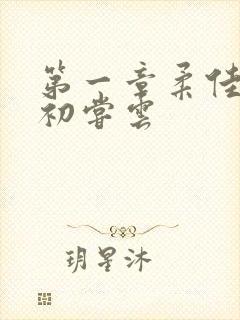 第一章柔佳
初尝云
玥星沐